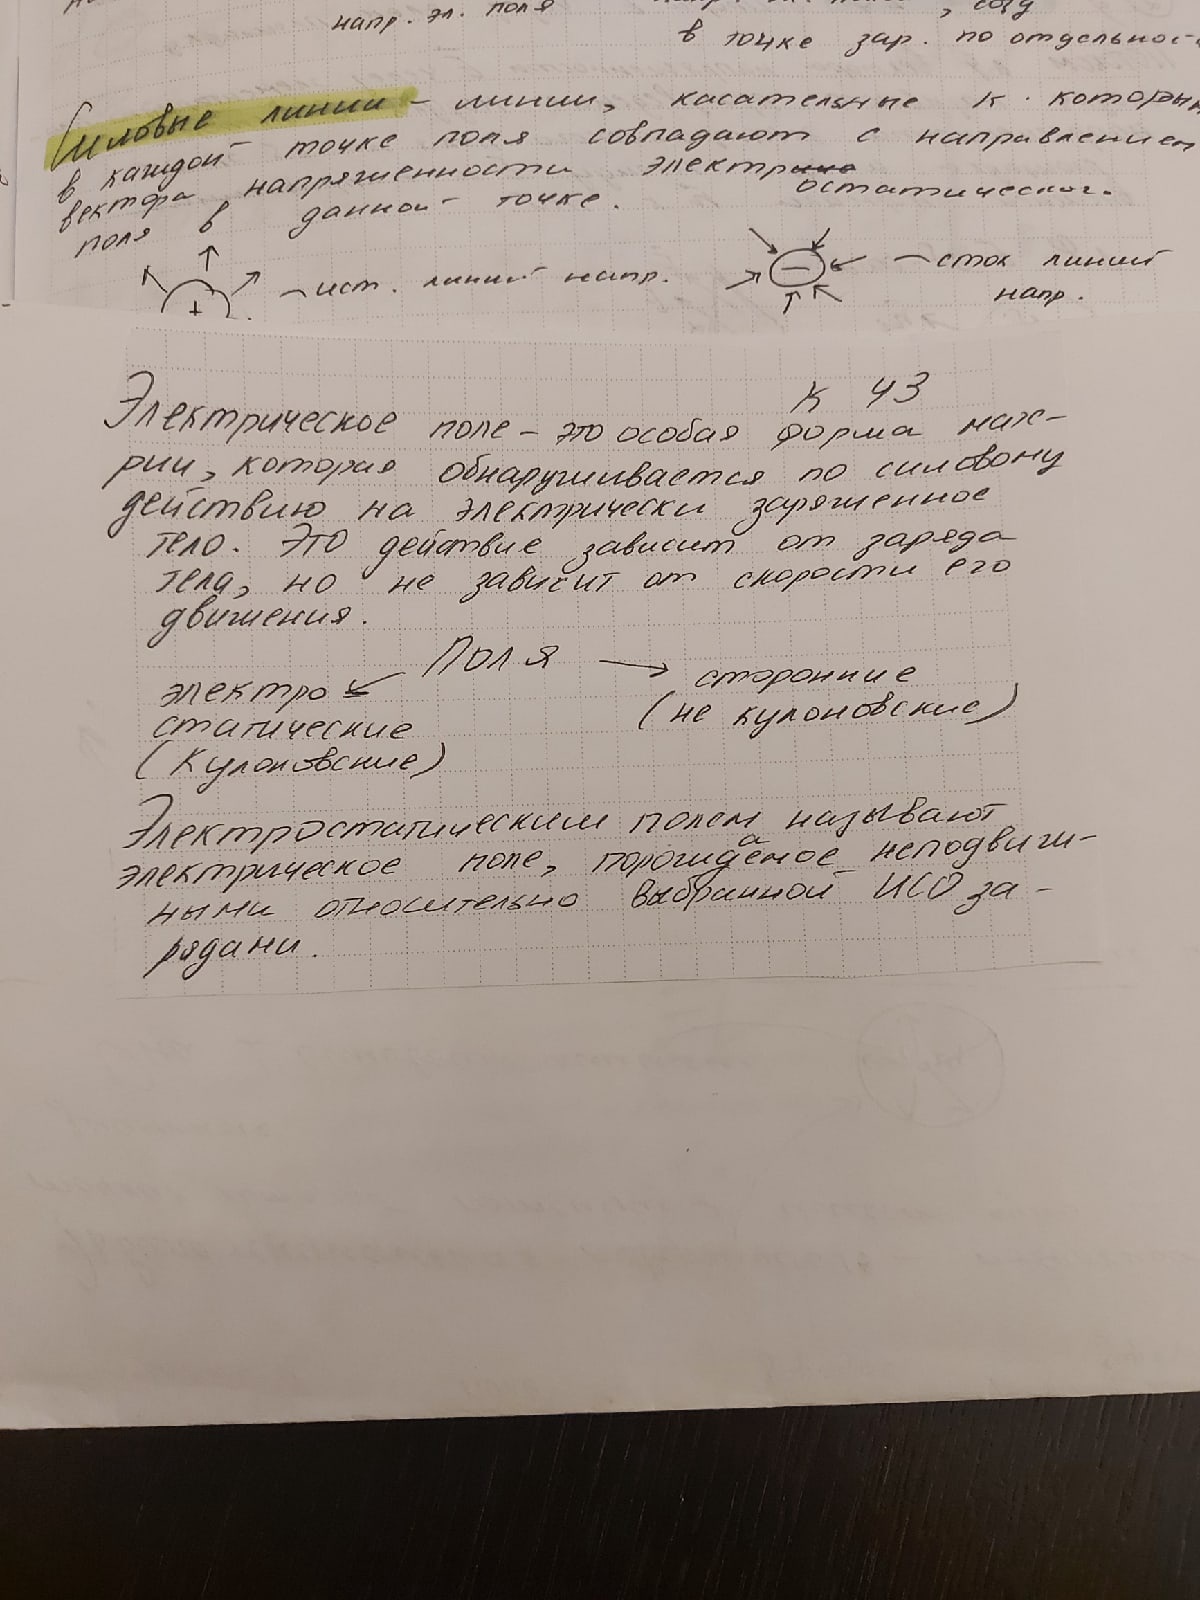 напр. эл. поля
в точке зар. по отдельнос
Силовые линии - линии, касательные к которым
в каждой точке поля совпадают с направлением
вектора напряженности электростатическог.
поля в данной точке.
+ - ист. линий напр.
− - сток линий
напр.
К 43
Электрическое поле - это особая форма мате-
рии, которая обнаруживается по силовому
действию на электрически заряженное
тело. Это действие зависит от заряда
тела, но не зависит от скорости его
движения.
Поля
электро
статические
(Кулоновские)
сторонние
(не кулоновские)
Электростатическим полем называют
электрическое поле, порождаемое неподвиж-
ными относительно выбранной ИСО за-
рядами.